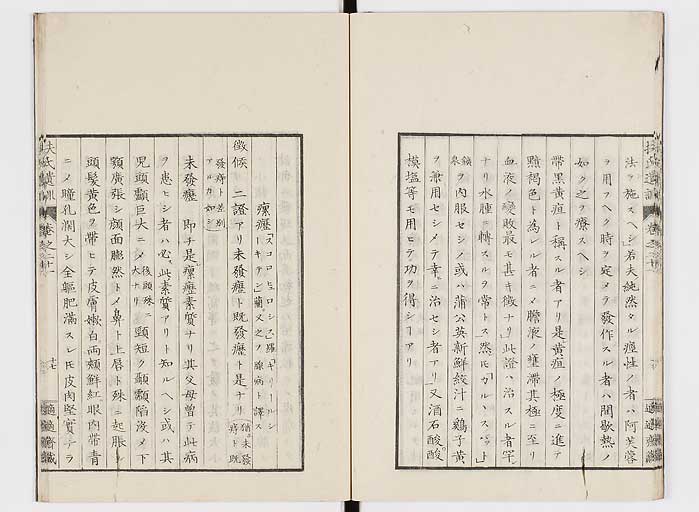 法ヲ施スヘシ若夫純然タル痙性ノ者ハ阿芙蓉
ヲ用フヘク時ヲ定メテ發作スル者ハ間歇熱ノ
如ク之ヲ療スヘシ
帶黒黄疸ト稱スル者アリ是黄疸ノ極度ニ進テ
黯褐色ト為レル者ニメ膽液ノ壅滯其極ニ至リ
血液ノ變敗最モ甚キ徴ナリ此證ハ治スル者罕
ナリ水腫ニ轉スルヲ常トス然𪜈「カルヽスハット」
鑛泉ヲ内服セシメ或ハ蒲公英新鮮絞汁ニ鷄子黄
ヲ兼用セシメテ幸ニ治セシ者アリ又酒石酸
模塩等モ用ヒテ功ヲ得シヿアリ
扶氏遺訓 巻之二十一
十七
適適齋藏
瘰癧
徴候 二證アリ未發癧ト既發癧ト是ナリ
猶未發疿ト既
發疿ト差別
アルカ如シ
未發癧 即チ是瘰癧素質ナリ其父母曾テ此病
ヲ患ヒシ者ハ必此素質アリト知ルヘシ或ハ其
児頭顱巨大ニメ後頭殊ニ大ナリ頸短ク顳顬陥没メ下
顎廣張シ顔面膨然トメ鼻ト上唇ト殊ニ起脹ル
頭髪黄色ヲ帶ヒテ皮膚嫩白両頬鮮紅眼肉帶青
ニメ瞳孔濶大シ全軀肥滿スレ𪜈皮肉堅實ナラ